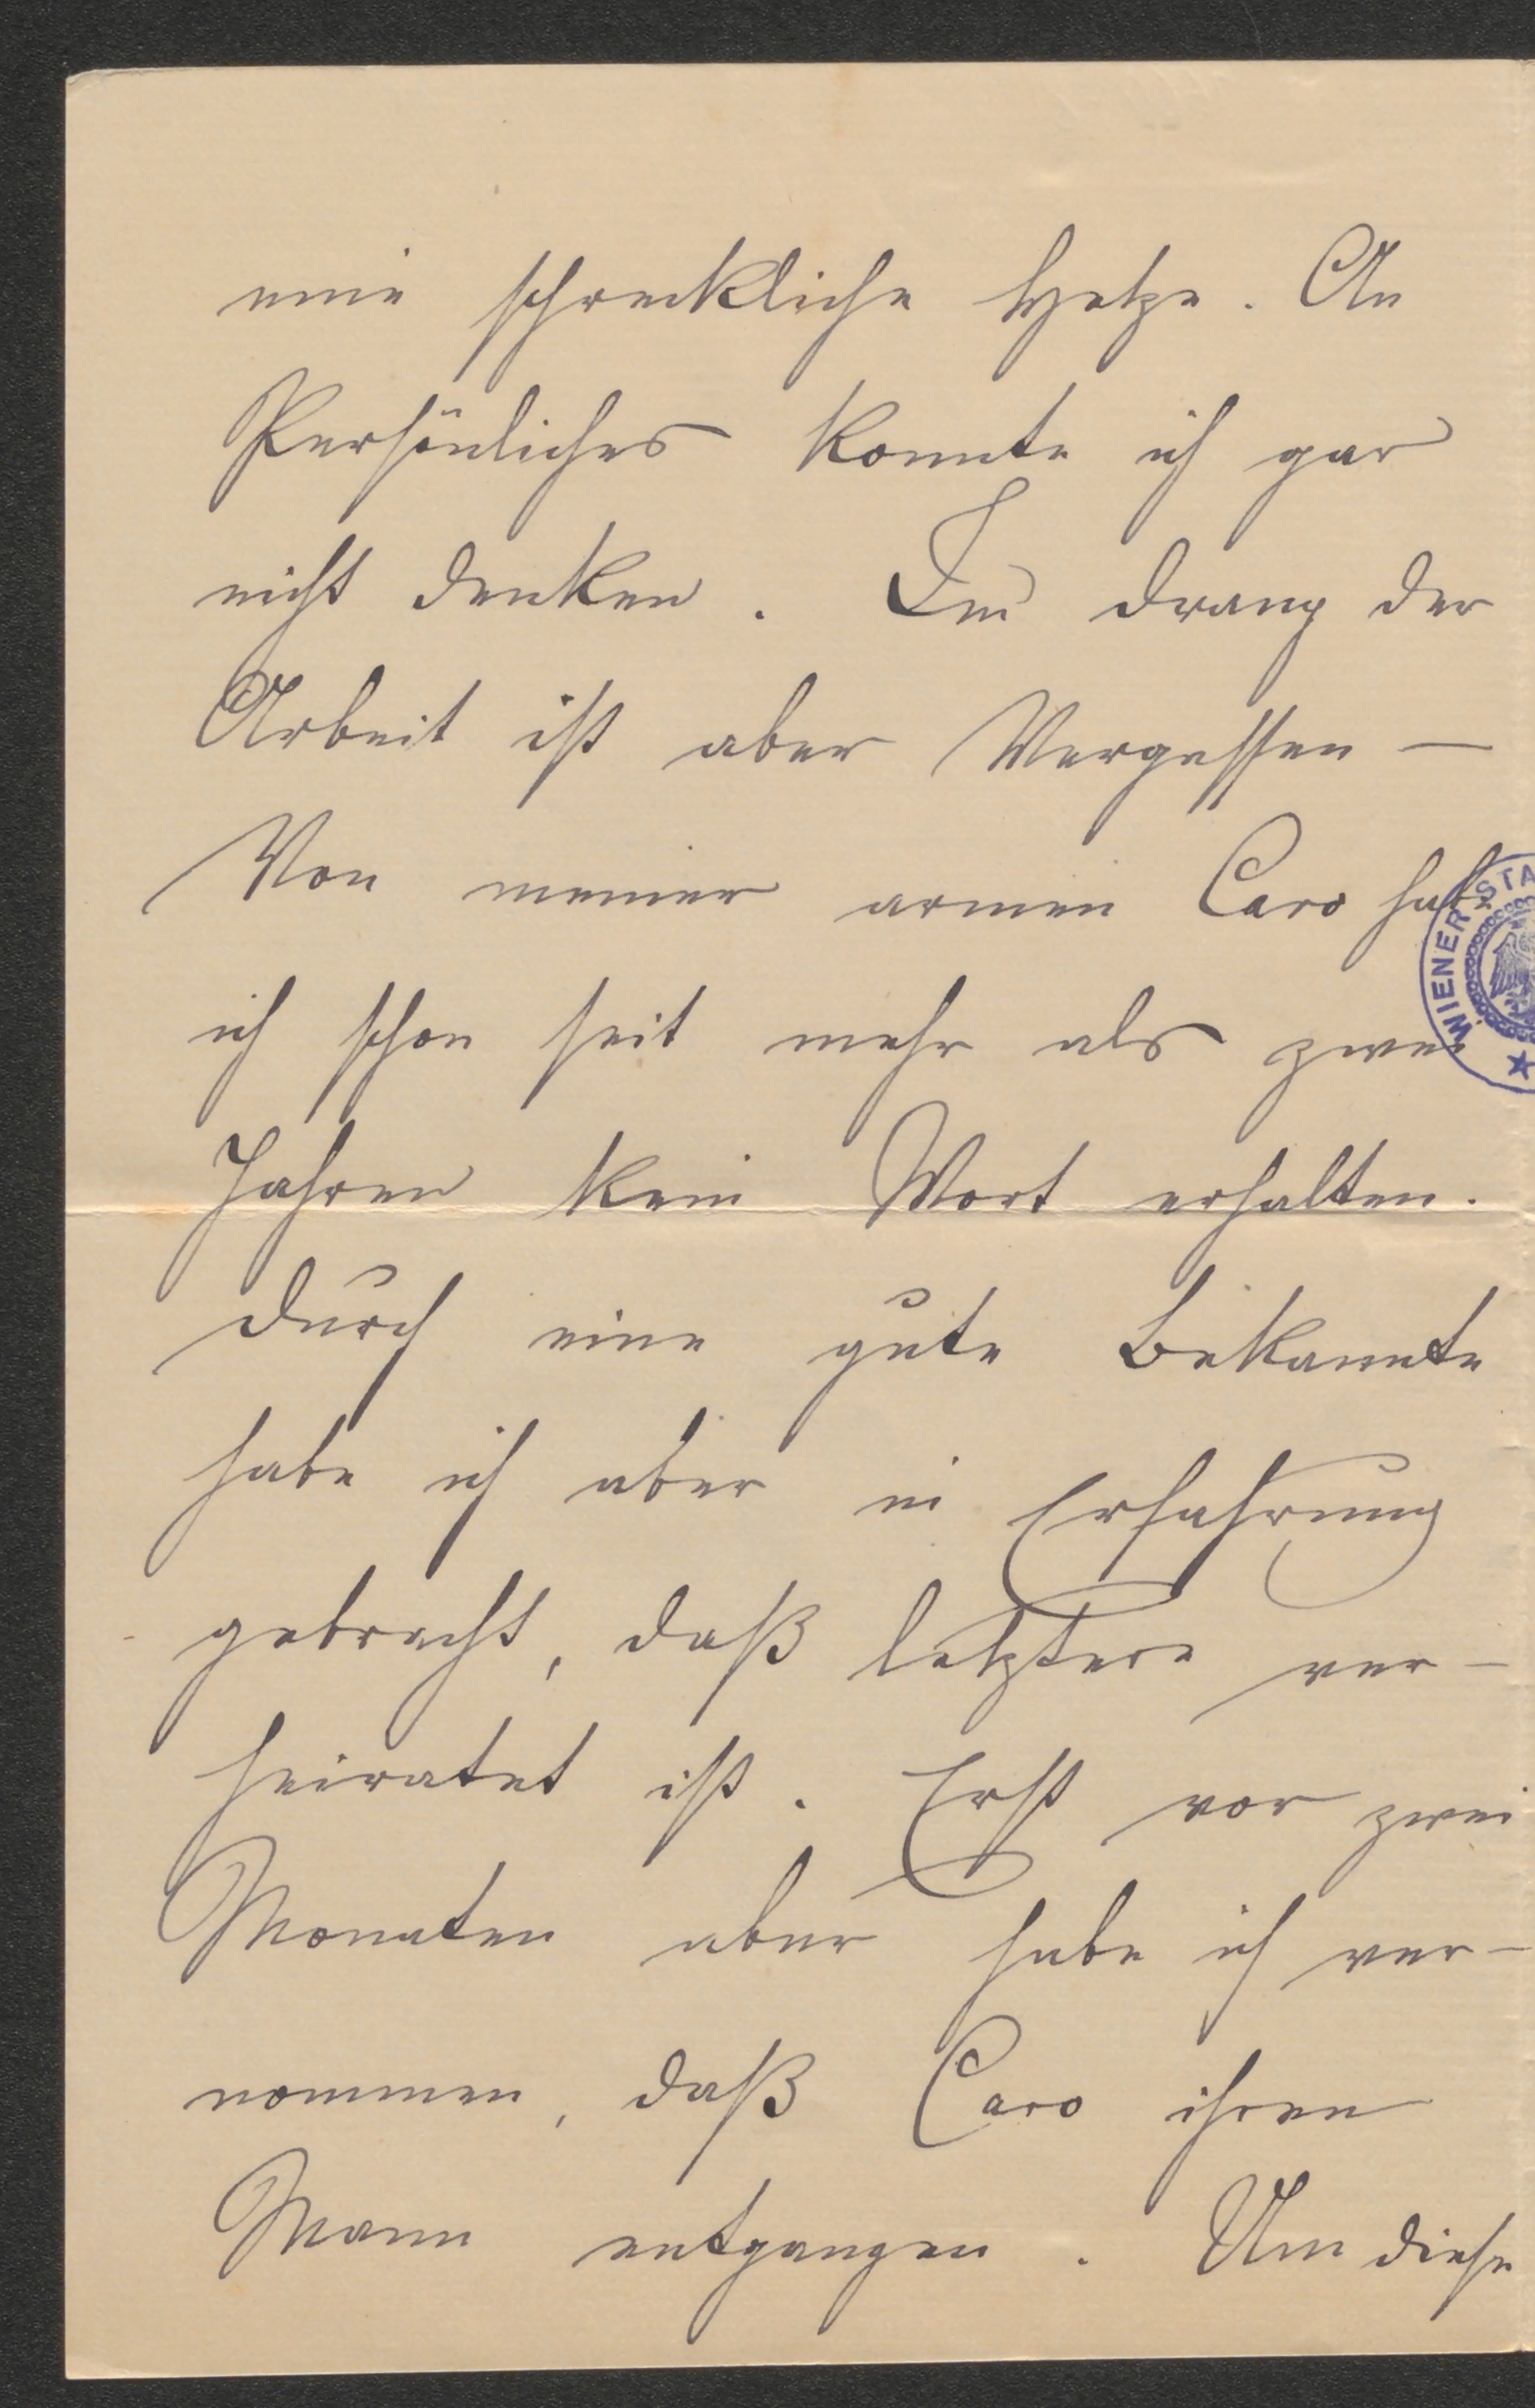 eine schreckliche Hetze. An
Persönliches konnte ich gar
nicht denken. Im Drang der
Arbeit ist aber Vergessen —
Von meiner armen Caro habe
ich schon seit mehr als zwei
Jahren kein Wort erhalten.
Durch eine gute Bekannte
habe ich aber in Erfahrung
gebracht, daß letztere ver-
heiratet ist. Erst vor zwei
Monaten aber habe ich ver-
nommen, daß Caro ihrem
Mann entgangen. Um diese
WIENER STA